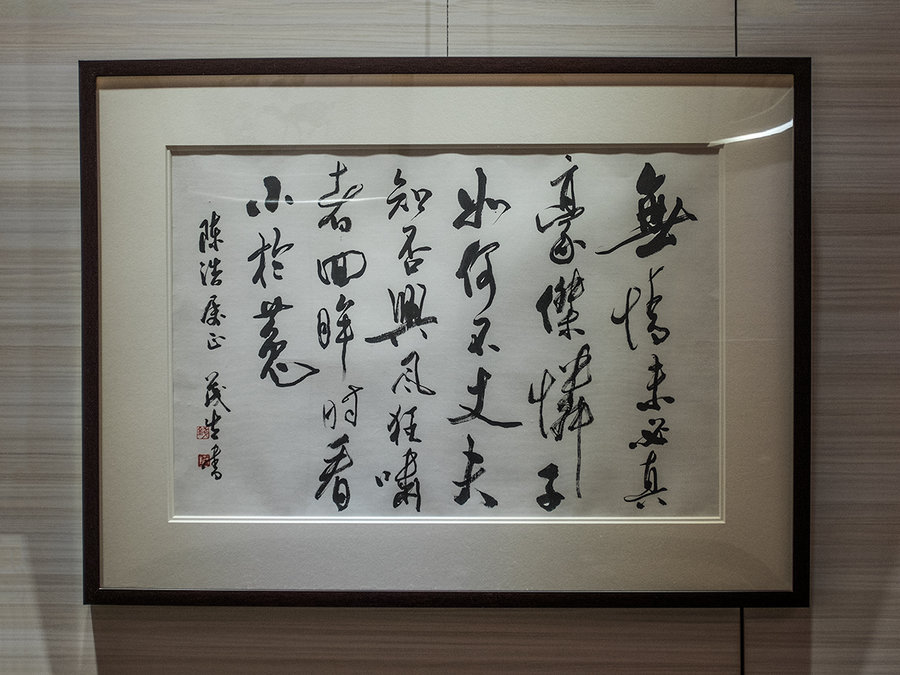 無情未必真
豪傑憐子
如何不丈夫
知否興風狂嘯
者回眸时看
小於菟
陈浩属正 茂生書